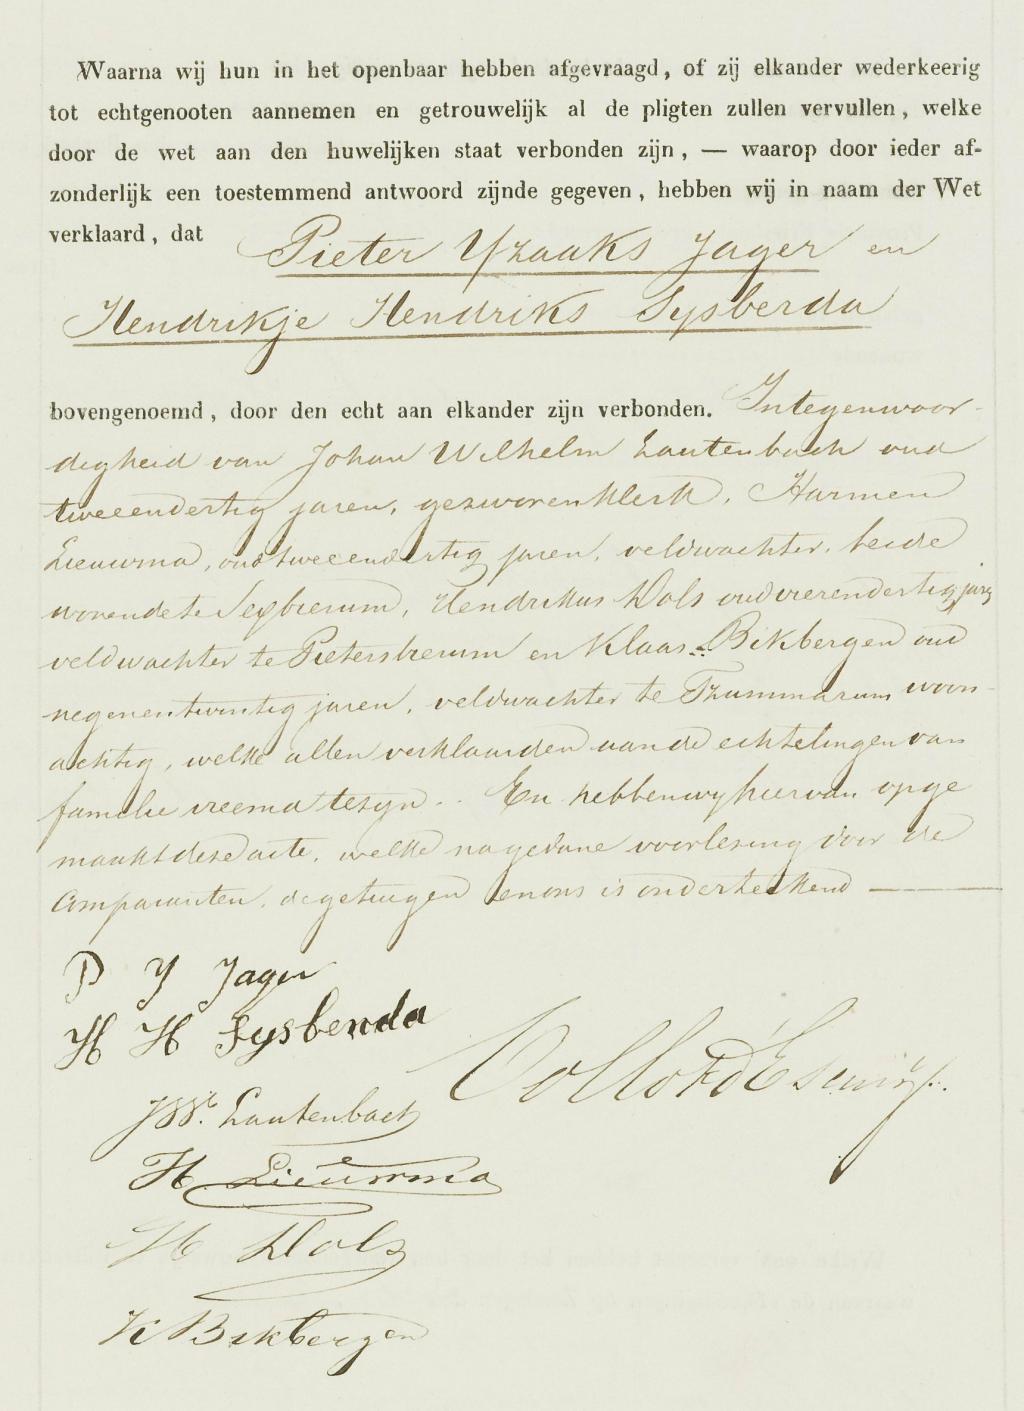 Waarna wij hun in het openbaar hebben afgevraagd, of zij elkander wederkeerig
tot echtgenooten aannemen en getrouwelijk al de pligten zullen vervullen, welke
door de wet aan den huwelijken staat verbonden zijn, — waarop door ieder af-
zonderlijk een toestemmend antwoord zijnde gegeven, hebben wij in naam der Wet
verklaard, dat Pieter Yzaaks Jager en
Hendrikje Hendriks Sysberda
bovengenoemd, door den echt aan elkander zijn verbonden. In tegenwoor-
digheid van Johan Wilhelm Lautenbach oud
tweeendertig jaren, gezworen klerk, Harmen
Lieuwma, oud tweeendertig jaren, veldwachter, beide
wonende te Sexbierum, Hendrikus Dols oud vierendertig jaren
veldwachter te Pietersbierum en Klaas Bikbergen oud
negenentwintig jaren, veldwachter te Tzummarum woon-
achtig, welke allen verklaarden aan de echtelingen van
familie vreemd te zyn. En hebben wy hiervan opge
maakt deze acte, welke na gedane voorlezing door de
Comparanten, de getuigen en ons is onderteekend —
P Y Jager
H H Sysbenda
JW. Lautenbach
H Lieuwma
H Dols
K Bikbergen